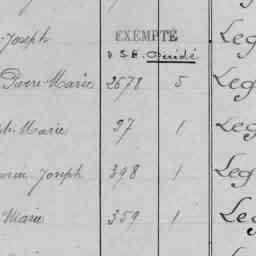 Joseph EXEMPTÉ Leg
Pierre-Marie 2678 5 Leg
Marie 97 1 Leg
Joseph 398 1 Leg
Marie 359 1 Leg